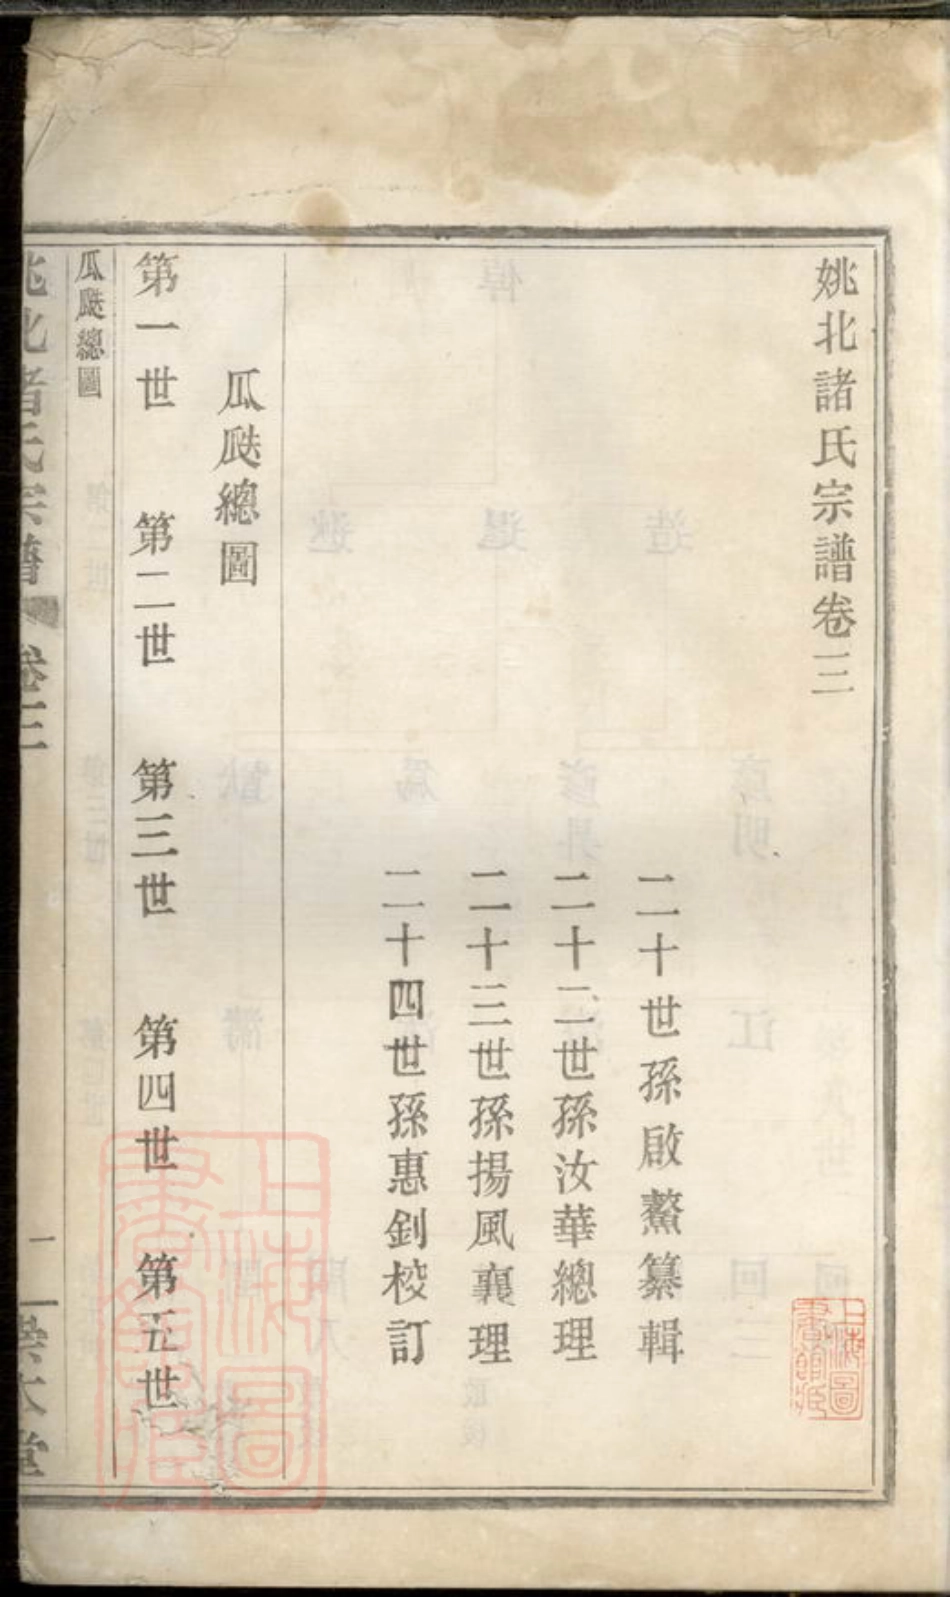 姚北諸氏宗譜卷三
二十世孫啟鰲纂輯
二十二世孫汝華總理
二十三世孫揚風襄理
二十四世孫惠釗校訂
瓜瓞總圖
第一世 第二世 第三世 第四世 第五世
瓜瓞總圖
姚北諸氏宗譜 卷三 一
上海圖書館藏
上海圖書館藏